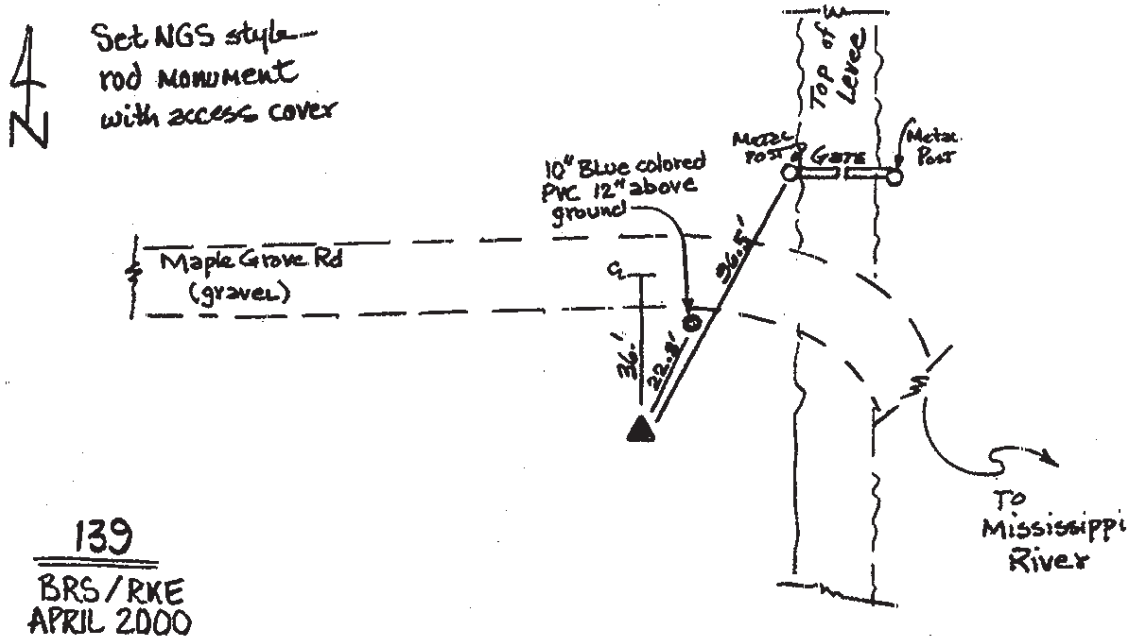 Set NGS style
rod Monument
with access cover
N
Top of
Levee
Metal
Post
Gate
Metal
Post
10" Blue colored
PVC 12" above
ground
Maple Grove Rd
(gravel)
36.'
22.8'
96.5'
To
Mississippi
River
139
BRS/RKE
APRIL 2000